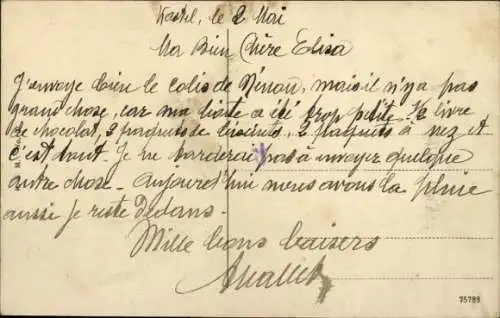 Kastel, le 2 Mai
Ma Bien Chère Elisa
J'envoye bien le colis de Ménou, mais il n'y a pas
grans chose, car ma boite a été trop petite. 1/2 livre
de chocolat, 2 paquets de biscuits, 2 paquets à nez et
c'est tout. Je ne tarderai pas à envoyer quelque
autre chose. Aujourd'hui nous avons la pluie
aussi je reste dedans.
Mille bons baisers
75788